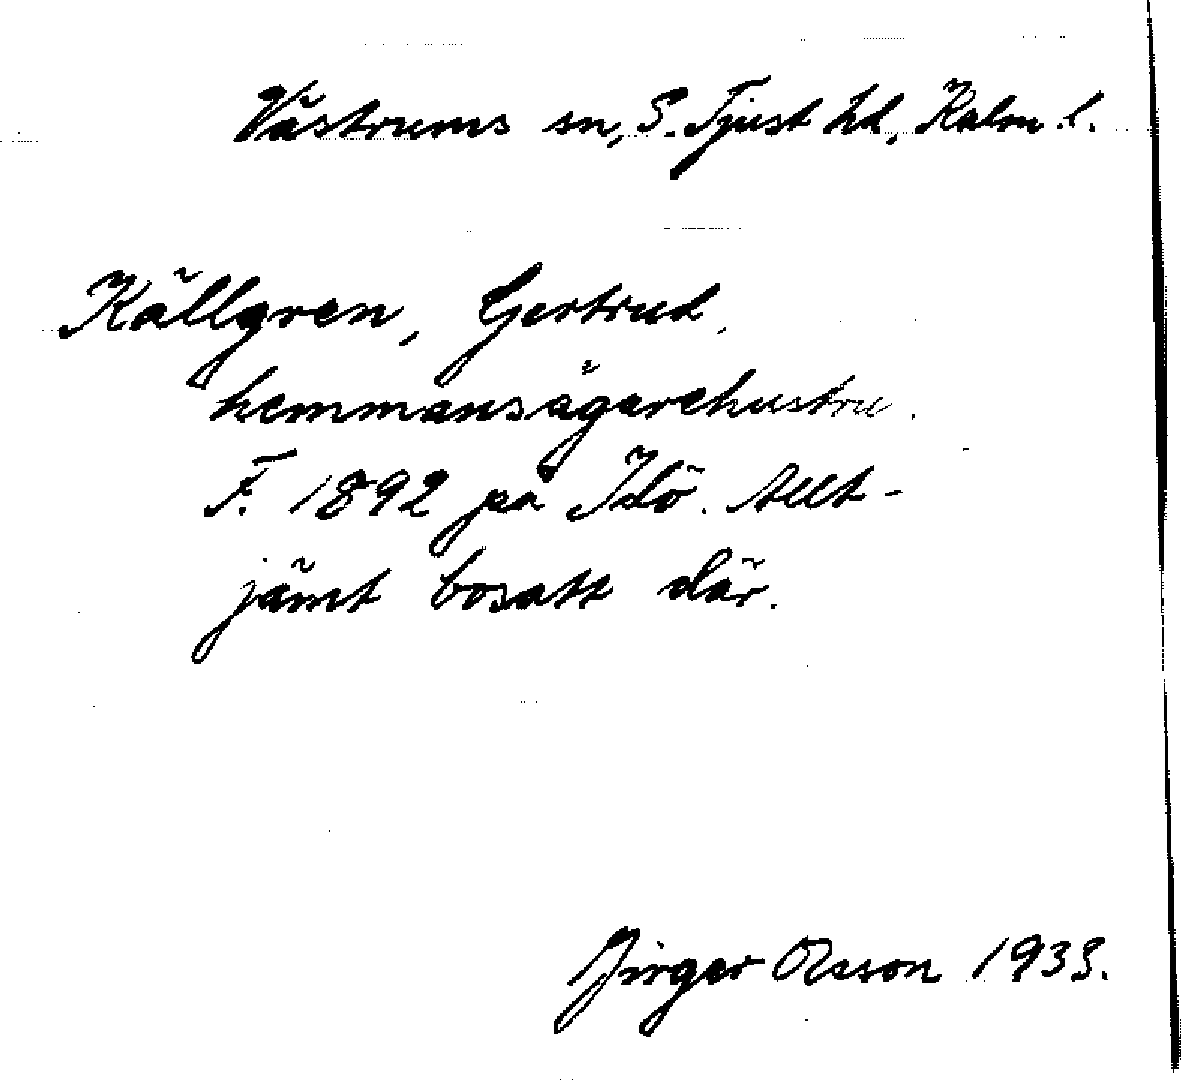 Västrums sn, S. Tjust hd, Kalm. l.
Källgren, Gertrud,
hemmansägarehustru.
F. 1892 på Idö. Allt-
jämt bosatt där.
Birger Olsson 1933.